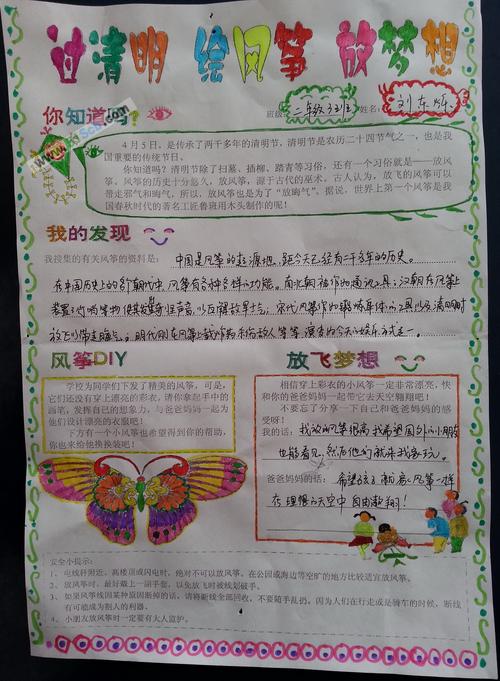 过清明 绘风筝 放梦想
你知道吗？
班级 二年级3班 姓名：刘东
4月5日，是传承了两千多年的清明节，清明节是农历二十四节气之一，也是我
国重要的传统节日。
你知道吗？清明节除了扫墓、插柳、踏青等习俗，还有一个习俗就是——放风
筝。风筝的历史十分悠久，放风筝，源于古代的巫术。古人认为，放飞的风筝可以
带走邪气和晦气，所以，放风筝也是为了“放晦气”。据说，世界上第一个风筝是我
国春秋时代的著名工匠鲁班用木头制作的呢！
我的发现
我搜集的有关风筝的资料是： 中国是风筝的起源地，距今天已经有二千多年的历史。
在中国历史上的各个朝代中，风筝有各种各样的功能。南北朝被作为通讯工具；汉朝在风筝上
装置竹哨等物使其发声，以 宋代风筝作为锻炼身体的工具以及清明时
放飞以带走晦气；明代则在风筝上载炸药 敌人等等，演变为今天的娱乐方式之一。
风筝DIY
放飞梦想
学校为同学们下发了精美的风筝，可是，
它们还没有穿上漂亮的彩衣，请你拿起手中的
画笔，发挥自己的想象力，与爸爸妈妈一起为
他们设计漂亮的衣服吧！
下方有一个小风筝也希望得到你的帮助，
你也来给他换换装吧！
相信穿上彩衣的小风筝一定非常漂亮，快
和你的爸爸妈妈一起带它去天空翱翔吧！
不要忘了分享一下自己和爸爸妈妈的感
受呀！
我的话：我放的风筝很高，我希望国外的小朋友
也能看见，然后他们就来找我玩。
爸爸妈妈的话： 希望孩子 风筝一样
在理想的天空中自由翱翔！
安全小提示：
1、电线杆附近、高楼顶或闪电时，绝对不可以放风筝。在公园或海边等空旷的地方比较适宜放风筝。
2、放风筝时，最好戴上一副手套，以免放飞时被线划破手。
3、如果风筝线因某种原因断掉的话，请将断线全部回收，不要随手乱扔。因为人们在行走或是骑车的时候，断线
有可能成为割人的利器。
4、小朋友放风筝时一定要有大人监护。